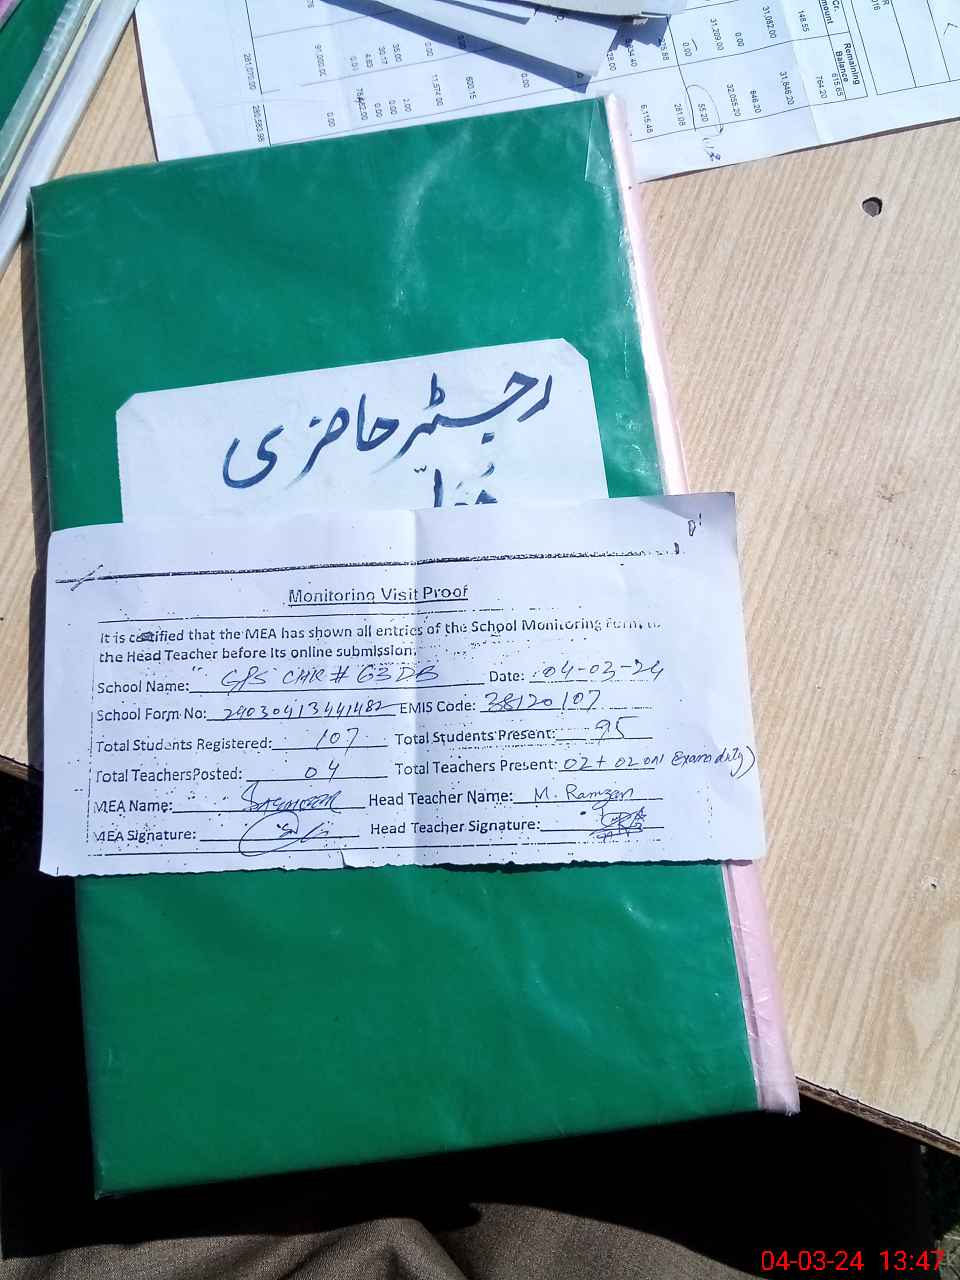 Cr.
mount
Remaining
Balance
148.55
615.65
764.20
31,082.00
31,846.20
0.00
846.20
31,209.00
32,055.20
0.00
55.20
281.08
6,115.48
0.00
600.15
11,574.00
0.00
35.00
30.17
4.83
0.01
0.00
0.00
91,000.00
0.00
281,070.00
280,583.98
رجسٹر حاضری
Monitoring Visit Proof
It is certified that the MEA has shown all entries of the School Monitoring Form, to
the Head Teacher before its online submission.
School Name: GPS CHK # 63 DB Date: 04-03-24
School Form No: 24030413441482 EMIS Code: 38120107
Total Students Registered: 107 Total Students Present: 95
Total TeachersPosted: 04 Total Teachers Present: 02 + 02 on Exam duty)
MEA Name: Head Teacher Name: M. Ramzan
MEA Signature: Head Teacher Signature:
04-03-24 13:47